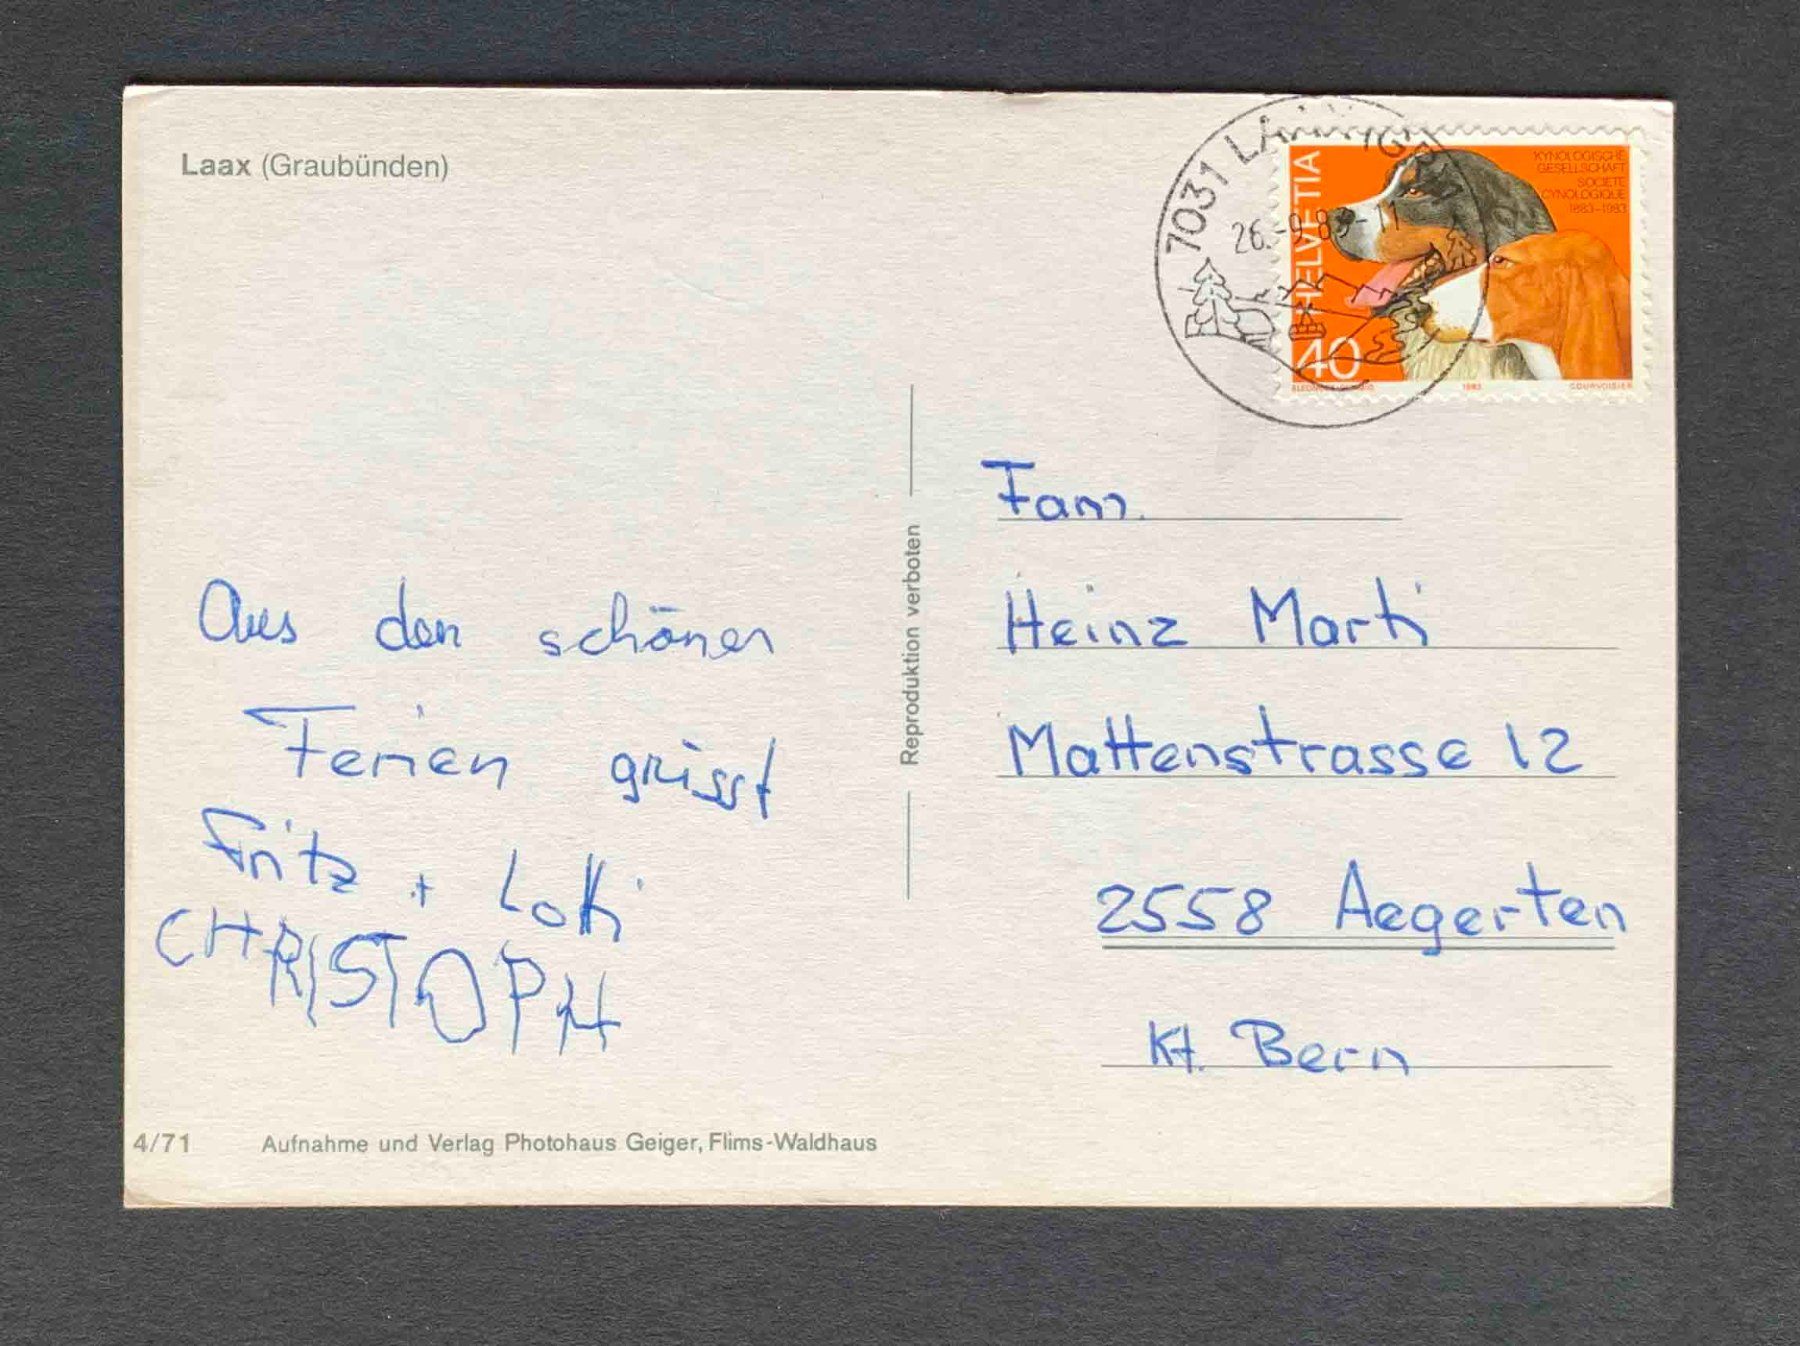 Laax (Graubünden)
7031 LAAX (GR)
26.-9.83-11
HELVETIA
KYNOLOGISCHE
GESELLSCHAFT
SOCIETE
CYNOLOGIQUE
1883–1983
40
1983
COURVOISIER
Aus den schönen
Ferien grüsst
Fritz + Loki
CHRISTOPH
Reproduktion verboten
Fam.
Heinz Marti
Mattenstrasse 12
2558 Aegerten
Kt. Bern
4/71 Aufnahme und Verlag Photohaus Geiger, Flims-Waldhaus